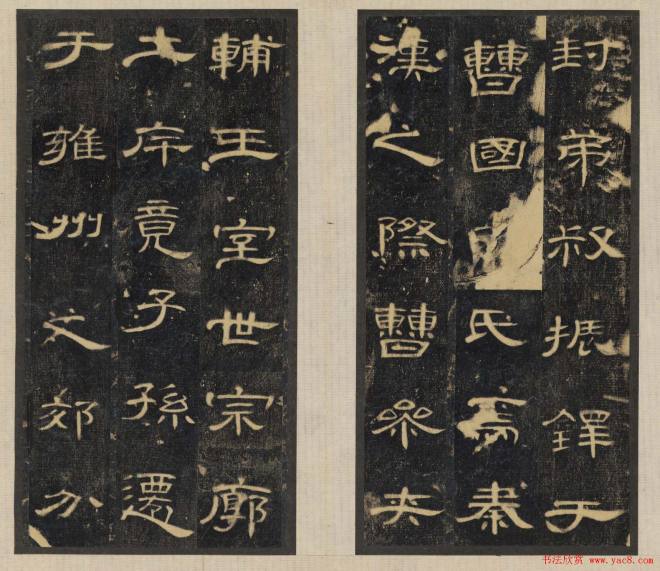 封弟叔振鐸于
曹國因氏焉秦
漢之際曹參夾
輔王室世宗廓
土斥竟子孫遷
于雍州之郊分
书法欣赏 www.yac8.com